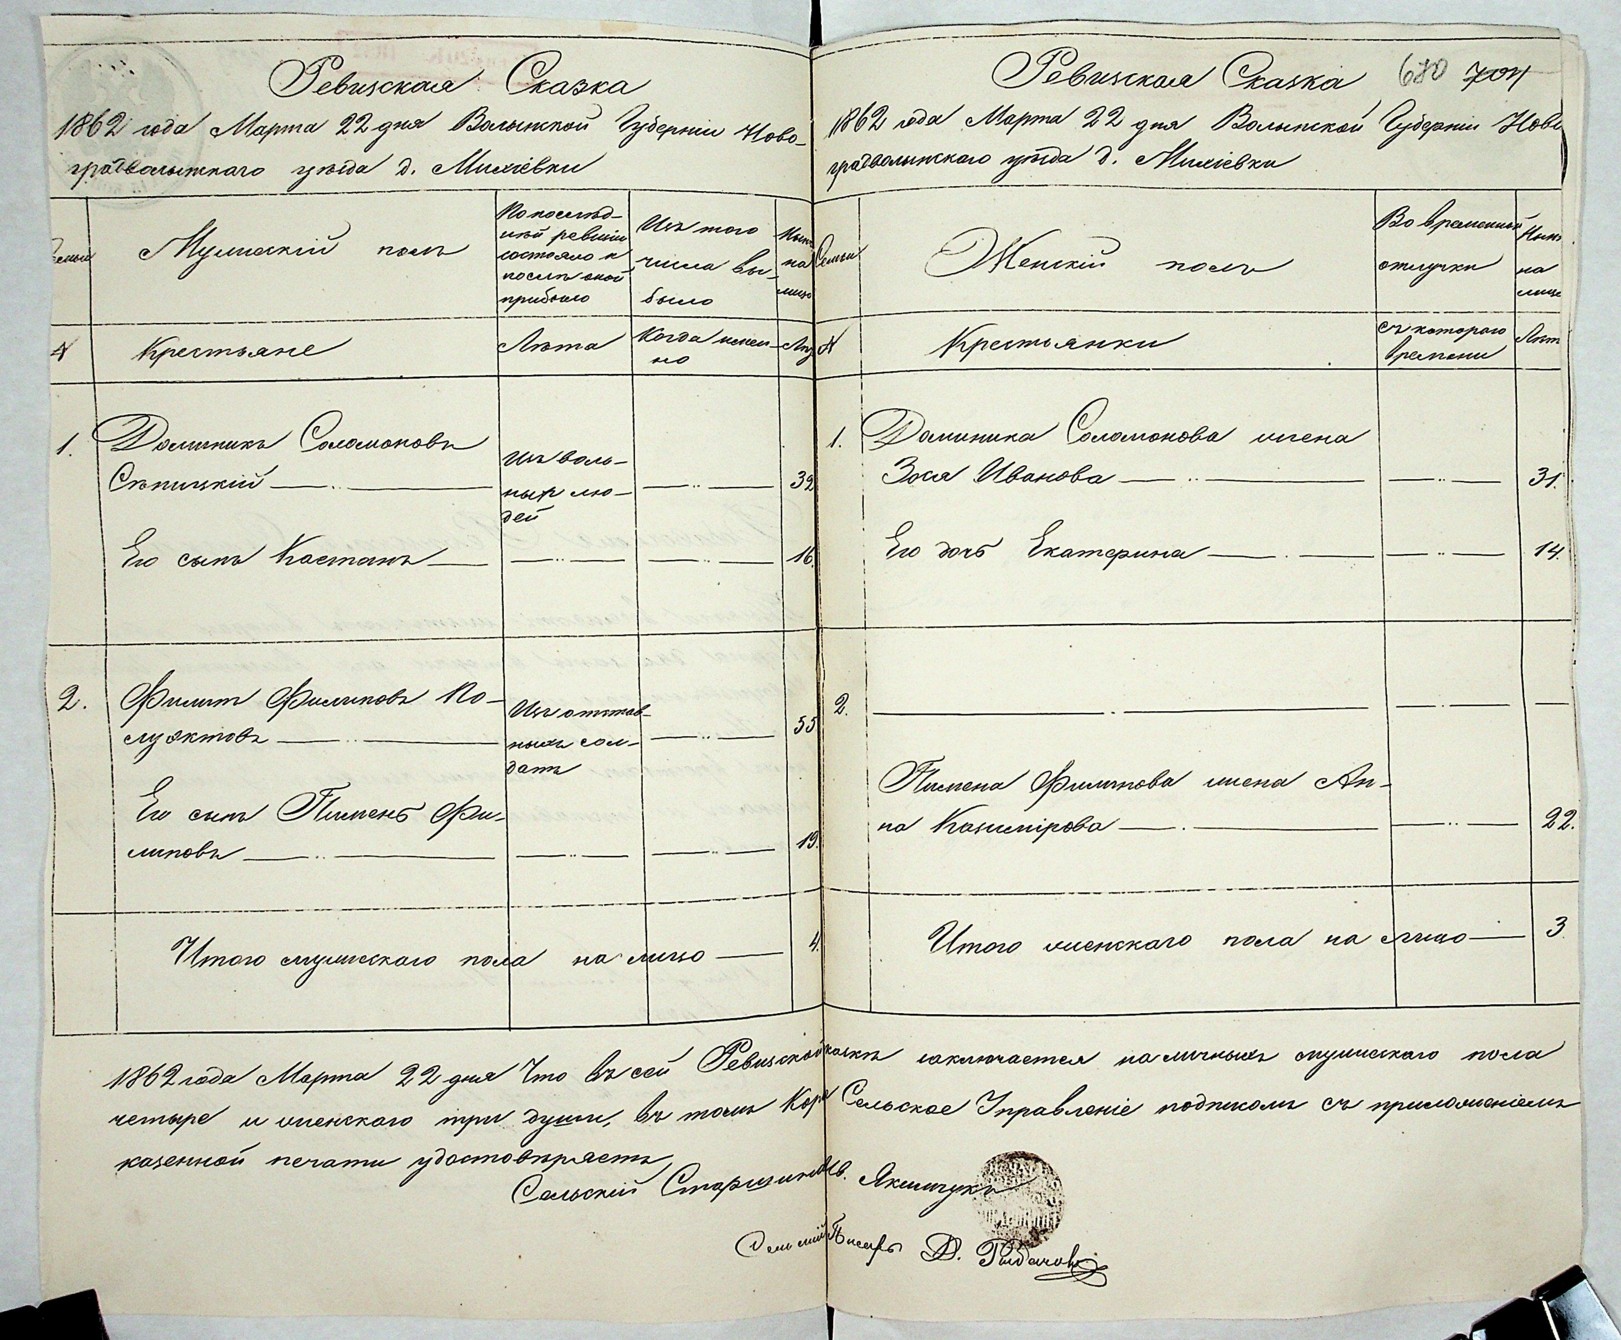 Ревизская Сказка
1862 года Марта 22 дня Волынской Губерніи Ново-
градволынскаго уѣзда д.
Мужескій полъ
По послѣд-
ней ревизіи
состояло и
послѣ оной
прибыло
Изъ того
числа вы-
было
Нынѣ
на
лицо
№
Крестьяне
Лѣта
Когда имен-
но
1.
Доминикъ Соломоновъ
Сѣпицкій
Изъ воль-
ныхъ лю-
дей
32
Его сынъ Каетанъ
16.
2.
Филипъ Филиповъ По-
Изъ отстав-
ныхъ сол-
датъ
55
Его сынъ Пименъ Фи-
липовъ
19.
Итого мужескаго пола на лицо
4.
Ревизская Сказка
680 704
1862 года Марта 22 дня Волынской Губерніи Ново
градволынскаго уѣзда д.
Семьи
Женскій полъ
Во временной
отлучки
Нынѣ
на
лицо
№
Крестьянки
съ котораго
времени
Лѣт
1.
Доминика Соломонова жена
Зося Иванова
31.
Его дочь Екатерина
14.
2.
Пимена Филипова жена Ан-
на Казимірова
22.
Итого женскаго пола на лицо
3.
1862 года Марта 22 дня Что въ сей Ревизской сказкѣ заключается наличныхъ мужескаго пола
четыре и женскаго три души, въ томъ Сельское Управленіе подписомъ съ приложеніемъ
казенной печати удостовѣряетъ
Сельскій Старшина Ив. Якимчукъ
Сельскій Писарь Д.